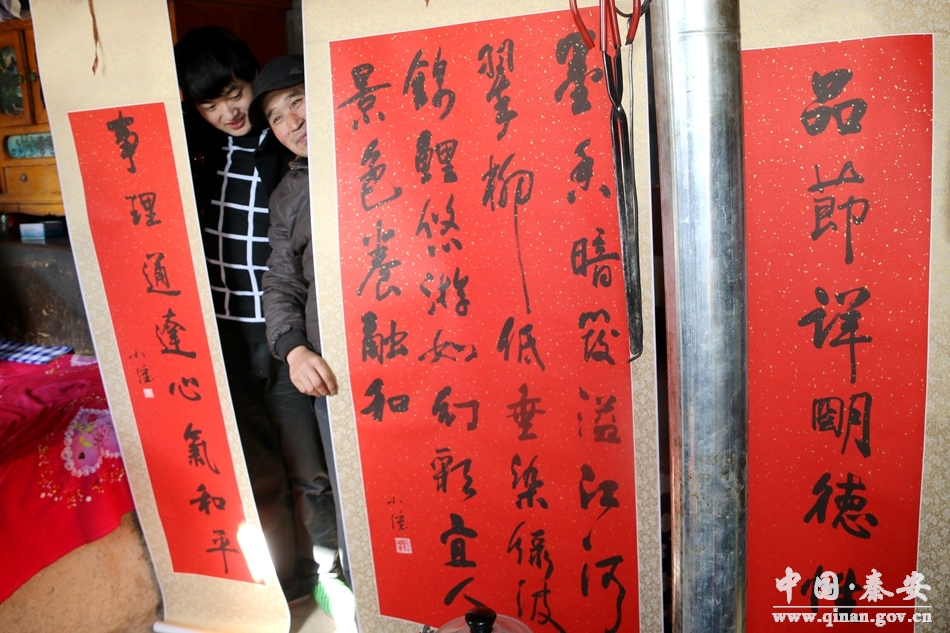 品節詳明德性
墨香暗發溢江河
翠柳低垂染綠波
錦鯉悠游如幻彩宜人
景色養融和
事理通達心氣和平
中国·秦安
www.qinan.gov.cn